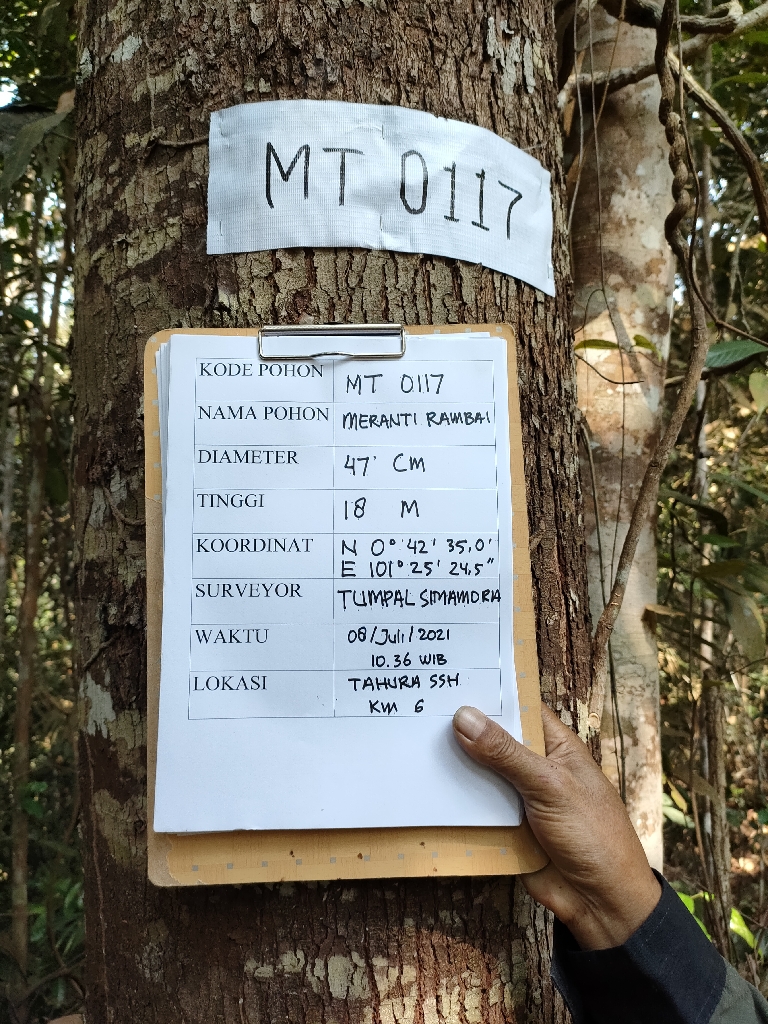 MT 0117
KODE POHON MT 0117
NAMA POHON MERANTI RAMBAI
DIAMETER 47' CM
TINGGI 18 M
KOORDINAT N 0° 42' 35,0'
E 101° 25' 24,5"
SURVEYOR TUMPAL SIMAMORA
WAKTU 08/Juli/2021
10.36 WIB
LOKASI TAHURA SSH
KM 6